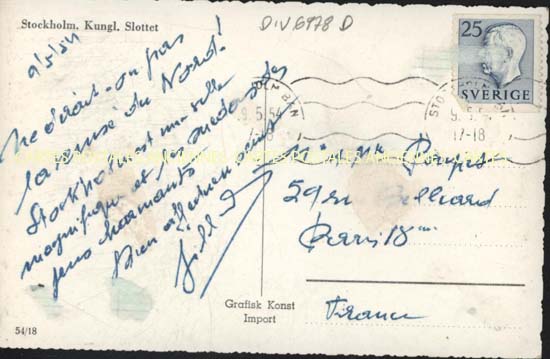 Stockholm. Kungl. Slottet
DIV6978 D
9/5/54
Ne dirait-on pas
la Venise du Nord!
Stockholm est une ville
magnifique et les suédois des
gens charmants
Bien affectueusement
25
SVERIGE
9.5.54
17-18
STO
9.5.5
17-18
59 rue Belliard
Paris 18me
France
Grafisk Konst
Import
54/18